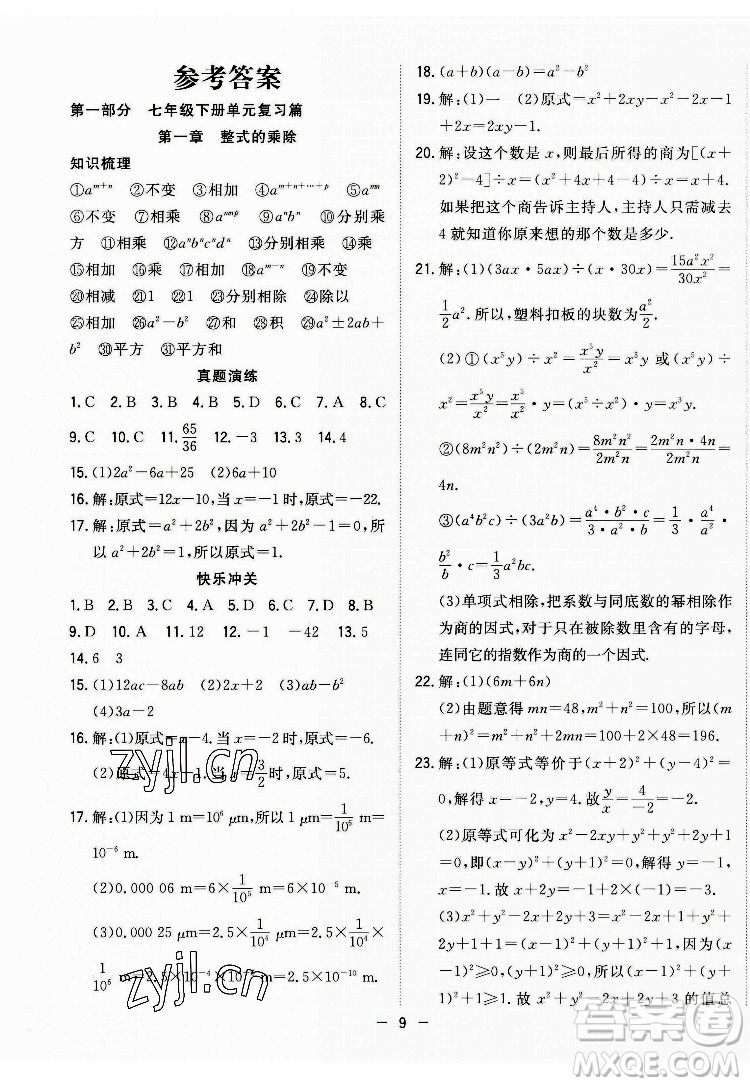 参考答案
第一部分 七年级下册单元复习篇
第一章 整式的乘除
知识梳理
①aᵐ⁺ⁿ ②不变 ③相加 ④aᵐ⁺ⁿ⁺…⁺ᵖ ⑤aᵐⁿ
⑥不变 ⑦相乘 ⑧aᵐⁿᵖ ⑨aⁿbⁿ ⑩分别乘
方 ⑪相乘 ⑫aⁿbⁿcⁿdⁿ ⑬分别相乘 ⑭乘
⑮相加 ⑯相加
⑳相减 ㉑1 ㉒分别相除 ㉓除以
㉕相加 ㉖a²-b² ㉗积 ㉘a²±2ab+b²
㉚平方 ㉛平方
真题演练
1.C 2.B 3.B 4.B 5.A 6.D 7.A 8.C
9.C 10.C 11.65/36 12.-3 13.3 14.4
15.(1)2a²-6a+25 (2)6a+10
16.解:原式=12x-10,当x=-1时,原式=-22.
17.解:原式=a²+2b²,因为a²+2b²-1=0,所
以a²+2b²=1,所以原式=1.
快乐冲关
1.B 2.B 3.C 4.A 5.A 6.C 7.C 8.B
9.D 10.A 11.12 12.-1 -42 13.5
14.6 3
15.(1)12ac-8ab (2)2x+2 (3)ab-b²
(4)3a-2
16.解:(1)原式= -1时,原式=0.
(2)原式=4x-1,当x= 3/2时,原式=5.
17.解:(1)因为1 m=10⁶ μm,所以1 μm=1/10⁶ m=
10⁻⁶ m.
(2)0.000 06 m=6×1/10⁵ m=6×10⁻⁵ m.
(3)0.000 25 μm=2.5×1/10⁴ μm=2.5×10⁻⁴×
1/10⁶ m=2.5×10⁻⁴×10⁻⁶ m=2.5×10⁻¹⁰ m.
18.(a+b)(a-b)=a²-b²
19.解:(1)一 (2)原式=x²+2xy-(x²-1)+
2x=2xy+2x+1.
20.解:设这个数是x,则最后所得的商为[(x+
2)²-4]÷x=(x²+4x+4-4)÷x=x+4.
如果把这个商告诉主持人,主持人只需减去
4就知道你原来想的那个数是多少.
21.解:(1)(3ax·5ax)÷(x·30x)=15a²x²/30x²=
1/2a².所以,塑料扣板的块数为a²/2.
(2)①(x⁵y)÷x²=x⁵y/x²或(x⁵y)÷
x²=x⁵y/x²=x⁵/x²·y=x³y.
②(8m²n²)÷(2m²n)=8m²n²/2m²n=2m²n·4n/2m²n=
4n.
③(a⁴b²c)÷(3a²b)=a⁴·b²·c/3·a²·b=1/3·a⁴/a²·
b²/b·c=1/3a²bc.
(3)单项式相除,把系数与同底数的幂相除作
为商的因式,对于只在被除数里含有的字母,
连同它的指数作为商的一个因式.
22.解:(1)(6m+6n)
(2)由题意得mn=48,m²+n²=100,所以(m
+n)²=m²+n²+2mn=100+2×48=196.
23.解:(1)原等式等价于(x+2)²+(y-4)²=0,
解得x=-2,y=4.故y/x=4/-2=-2.
(2)原等式可化为x²-2xy+y²+y²+2y+1
=0,即(x-y)²+(y+1)²=0.
解得x=y=-1.故x+2y=-1-2=-3.
(3)x²+y²-2x+4y+6=x²-2x+1+y²+
4y+4+1=(x-1)²+(y+2)²+1,因为(x
-1)²≥0,(y+2)²≥0,所以(x-1)²+(y+
2)²+1≥1.故x²+y²-2x+4y+6的值总
9
zyjl.cn
zyjl.cn
答案圈
MXQE.COM